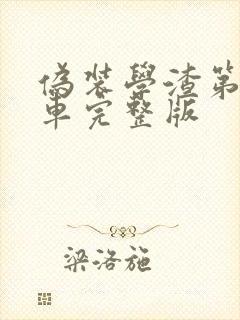 偽裝學渣第
車完整版
梁洛施